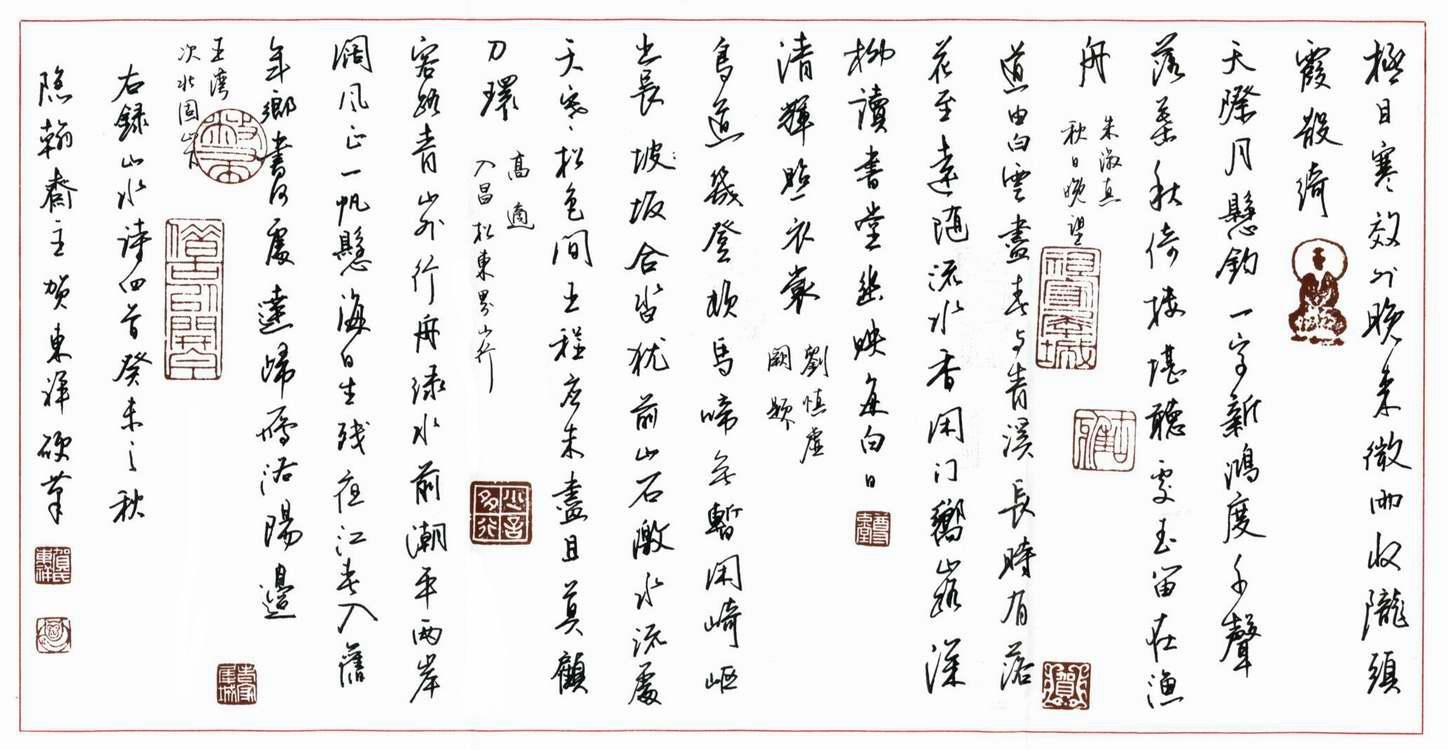 極目寒效外晚来微雨收隴頭
霞散綺
天際月懸鈎一字新鴻度千聲
落葉秋倚樓堪聽處玉笛在漁
舟
朱淑真
秋日晚望
道由白雲盡春与青溪長時有落
花至遠隨流水香闲门嚮山路深
柳讀書堂幽映每白日
清輝照衣裳
劉慎虛
闕題
鳥道幾登頓馬啼無暫闲崎嶇
出長坡坂合沓犹前山石激水流處
天寒松色间王程应未盡且莫顧
刀環
高適
入昌松東界山行
客路青山外行舟绿水前潮平兩岸
阔风正一帆懸海日生残夜江春入舊
年鄉書何處達歸雁洛陽邊
王湾
次北固山下
右録山水诗四首癸未之秋
隐翰齋主贺東祥硬筆
少言多行
賀氏東祥